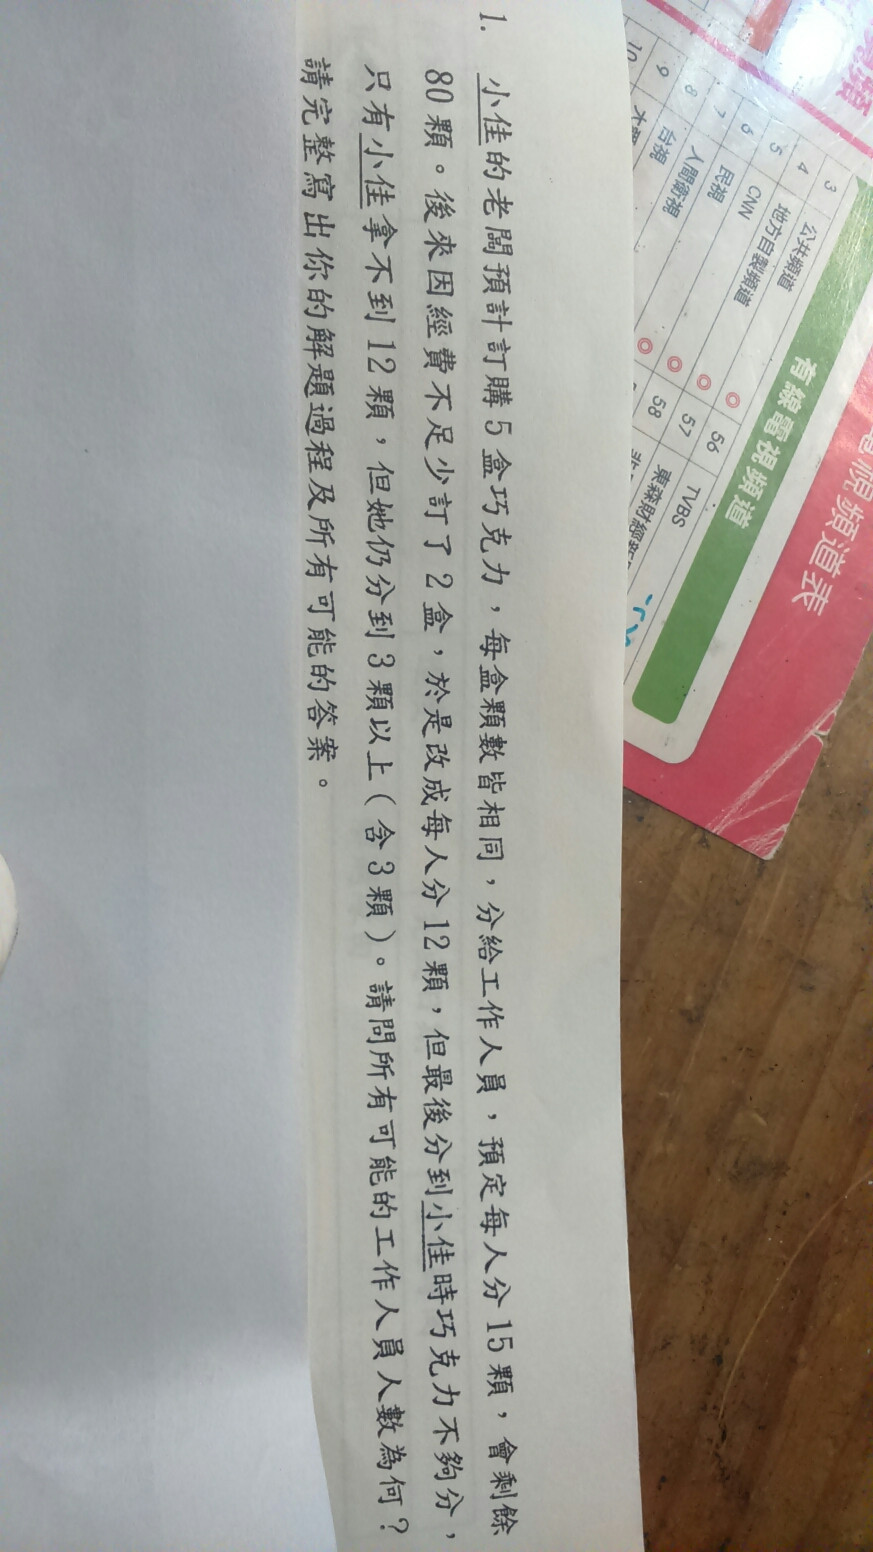 1. 小佳的老闆預計訂購5盒巧克力,每盒顆數皆相同,分給工作人員,預定每人分15顆,會剩餘
80顆。後來因經費不足少訂了2盒,於是改成每人分12顆,但最後分到小佳時巧克力不夠分,
只有小佳拿不到12顆,但她仍分到3顆以上(含3顆)。請問所有可能的工作人員人數為何?
請完整寫出你的解題過程及所有可能的答案。
視頻道表
有線電視頻道
3 公共頻道
4 地方自製頻道
5 CNN
6 民視
7 人間衛視
8 台視
9
10
56 TVBS
57 東森財經
58